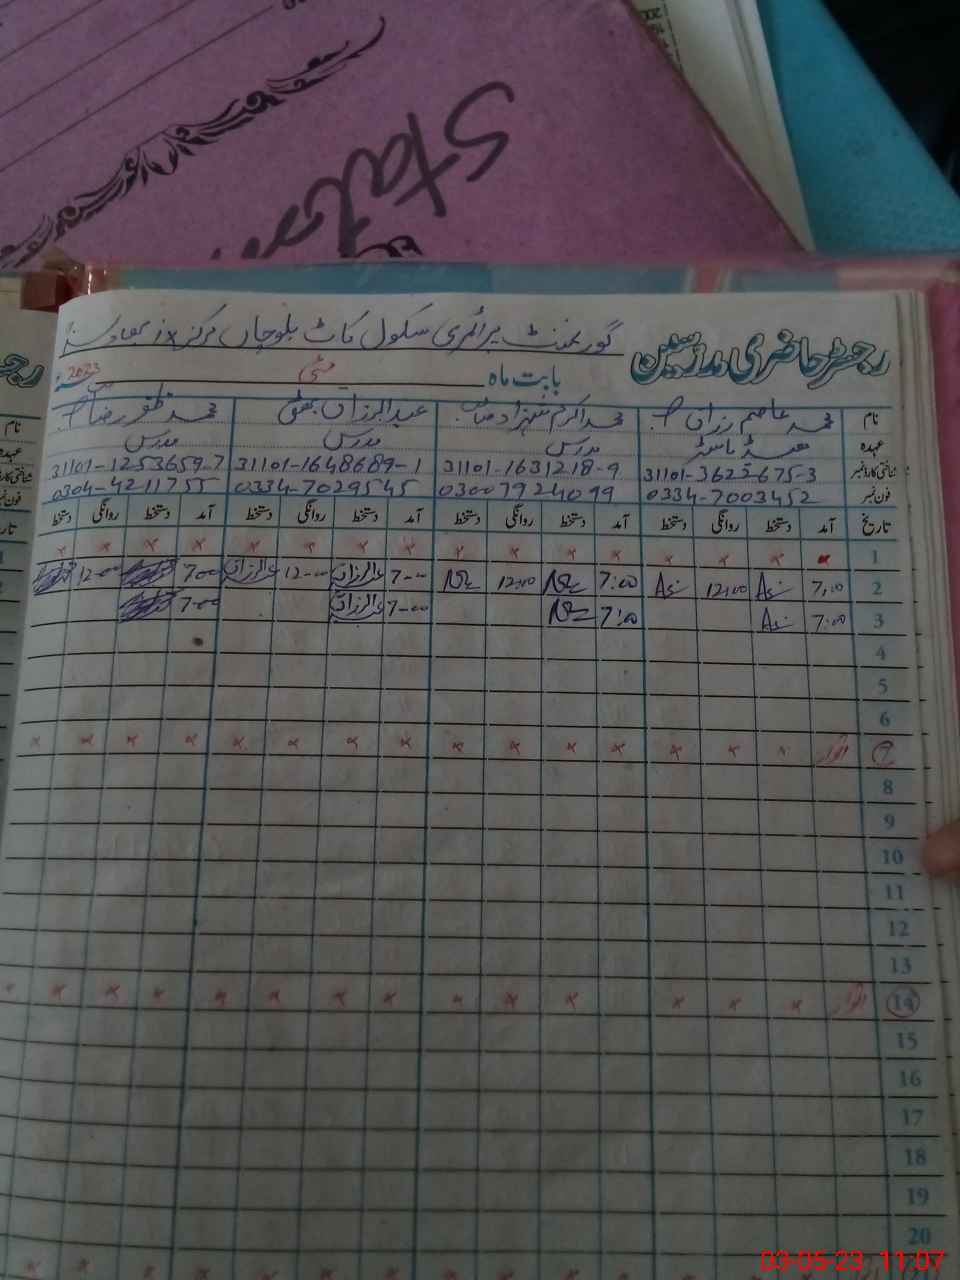 Station
گورنمنٹ پرائمری سکول کاٹ بلوچاں مرکز
رجسٹر حاضری مدرسین
بابت ماہ مئی 2023
نام محمد عاصم رزاق محمد اکرم شہزاد عبدالرزاق بھٹی محمد ظفر رضا
عہدہ ہیڈ ماسٹر مدرس مدرس مدرس
شناختی کارڈ نمبر 31101-3625675-3 31101-1631218-9 31101-1648689-1 31101-1253659-7
فون نمبر 0334-7003452 03007924099 0334-7029545 0304-4211755
تاریخ آمد دستخط روانگی دستخط آمد دستخط روانگی دستخط آمد دستخط روانگی دستخط آمد دستخط روانگی دستخط
1 × × × × × × × × × × × × × × ×
2 7:00 12:00 7:00 12:00 7-00 عبدالرزاق 12-00 عبدالرزاق 7-00 12-00
3 7:00 7:00 7-00 عبدالرزاق 7-00
4
5
6
7 اتوار × × × × × × × × × × × × × × ×
8
9
10
11
12
13
14 اتوار × × × × × × × × × × × × × ×
15
16
17
18
19
20
03-05-23 11:07